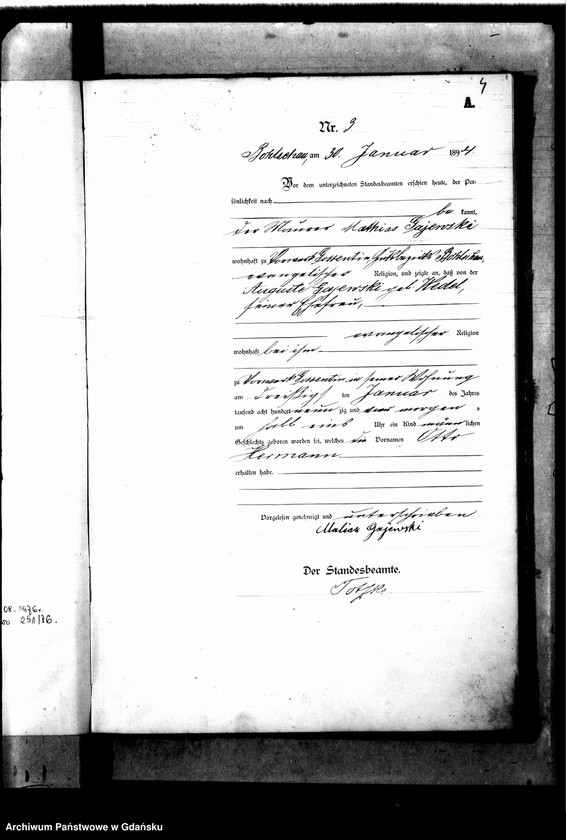 4
A.
Nr. 3
Bohlschau, am 30. Januar 1894
Vor dem unterzeichneten Standesbeamten erschien heute, der Per-
sönlichkeit nach
be kannt,
der Maurer Mathias Gajewski
wohnhaft zu Vorwerk Gossentin, Gutsbezirks Bohlschau,
evangelischer Religion, und zeigte an, daß von der
Auguste Gajewski geb. Wedel,
seiner Ehefrau,
evangelischer Religion
wohnhaft bei ihm
zu Vorwerk Gossentin in seiner Wohnung
am dreißigsten Januar des Jahres
tausend acht hundert neunzig und vier morgens
um halb eins Uhr ein Kind männlichen
Geschlechts geboren worden sei, welches die Vornamen Otto
Hermann
erhalten habe.
Vorgelesen genehmigt und unterschrieben
Gajewski
Der Standesbeamte.
08. 1976r.
251/76.
Archiwum Państwowe w Gdańsku